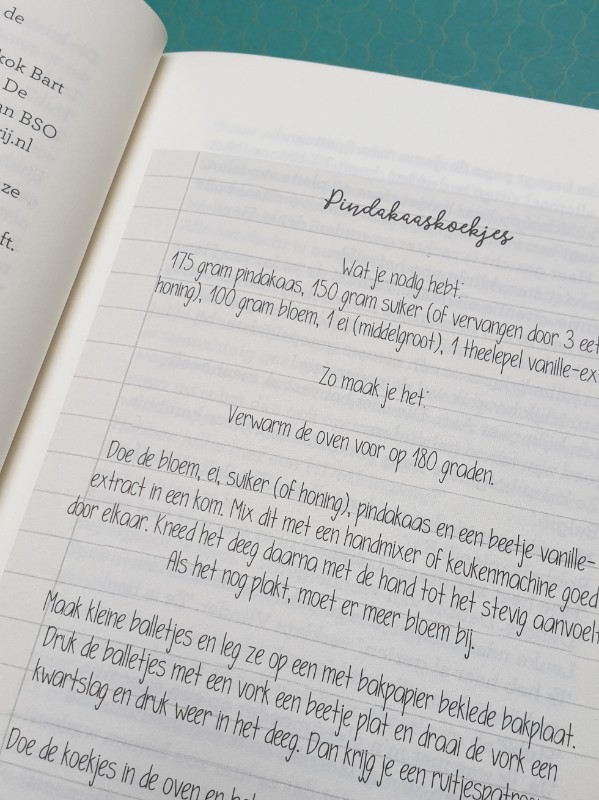 de
kok Bart
De
an BSO
ij.nl
ze
ft.
Pindakaaskoekjes
Wat je nodig hebt:
175 gram pindakaas, 150 gram suiker (of vervangen door 3 eet
honing), 100 gram bloem, 1 ei (middelgroot), 1 theelepel vanille-ex
Zo maak je het:
Verwarm de oven voor op 180 graden.
Doe de bloem, ei, suiker (of honing), pindakaas en een beetje vanille-
extract in een kom. Mix dit met een handmixer of keukenmachine goed
door elkaar. Kneed het deeg daarna met de hand tot het stevig aanvoelt
Als het nog plakt, moet er meer bloem bij.
Maak kleine balletjes en leg ze op een met bakpapier beklede bakplaat.
Druk de balletjes met een vork een beetje plat en draai de vork een
kwartslag en druk weer in het deeg. Dan krijg je een ruitjespatroo
Doe de koekjes in de oven en